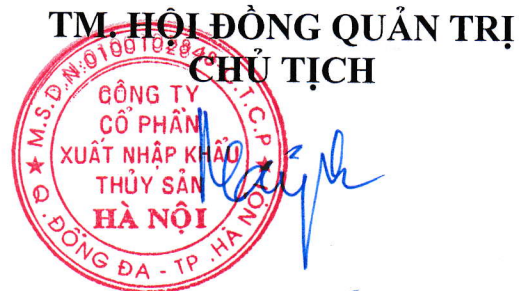 TM. HỘI ĐỒNG QUẢN TRỊ
CHỦ TỊCH
CÔNG TY
CỔ PHẦN
XUẤT NHẬP KHẨU
THỦY SẢN
HÀ NỘI
Q. ĐỐNG ĐA - TP. HÀ NỘI